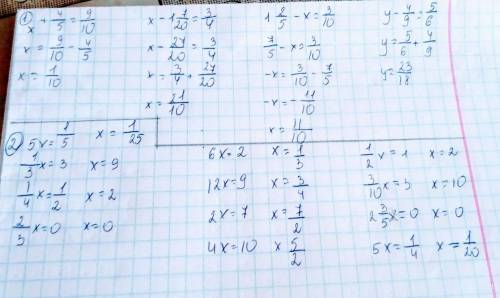 ① x + 4/5 = 9/10
x = 9/10 - 4/5
x = 1/10
x - 1 7/20 = 3/4
x - 27/20 = 3/4
x = 3/4 + 27/20
x = 21/10
1 2/5 - x = 3/10
7/5 - x = 3/10
-x = 3/10 - 7/5
-x = - 11/10
x = 11/10
y - 4/9 = 5/6
y = 5/6 + 4/9
y = 23/18
② 5x = 1/5 x = 1/25
1/3 x = 3 x = 9
1/4 x = 1/2 x = 2
2/3 x = 0 x = 0
6x = 2 x = 1/3
12x = 9 x = 3/4
2x = 7 x = 7/2
4x = 10 x 5/2
1/2 x = 1 x = 2
3/10 x = 3 x = 10
2 3/5 x = 0 x = 0
5x = 1/4 x = 1/20